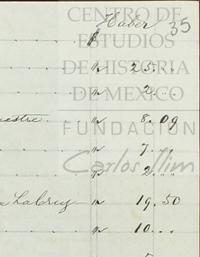 Haber 35
$
" 25...
" 2...
estre " 8.09
" 7...
" 2...
" 19.50
" 10...
CENTRO DE
ESTUDIOS
DE HISTORIA
DE MEXICO
FUNDACIÓN
Carlos Slim